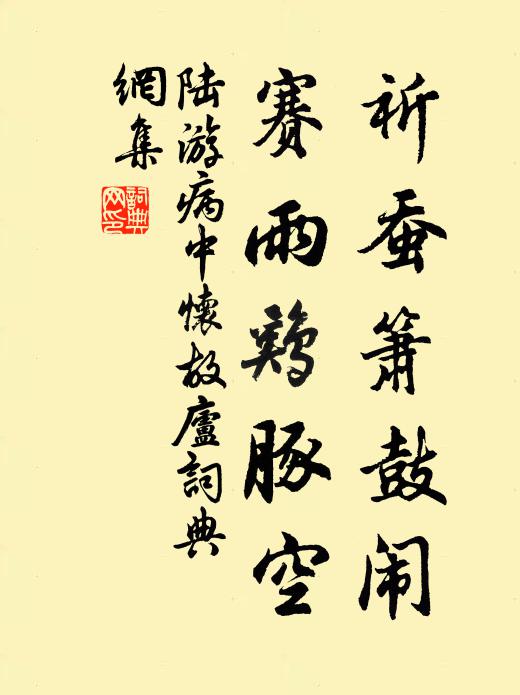 祈蚕箫鼓闹
赛雨鸡豚空
陆游病中懷故廬詞典
網集
詞典
网印